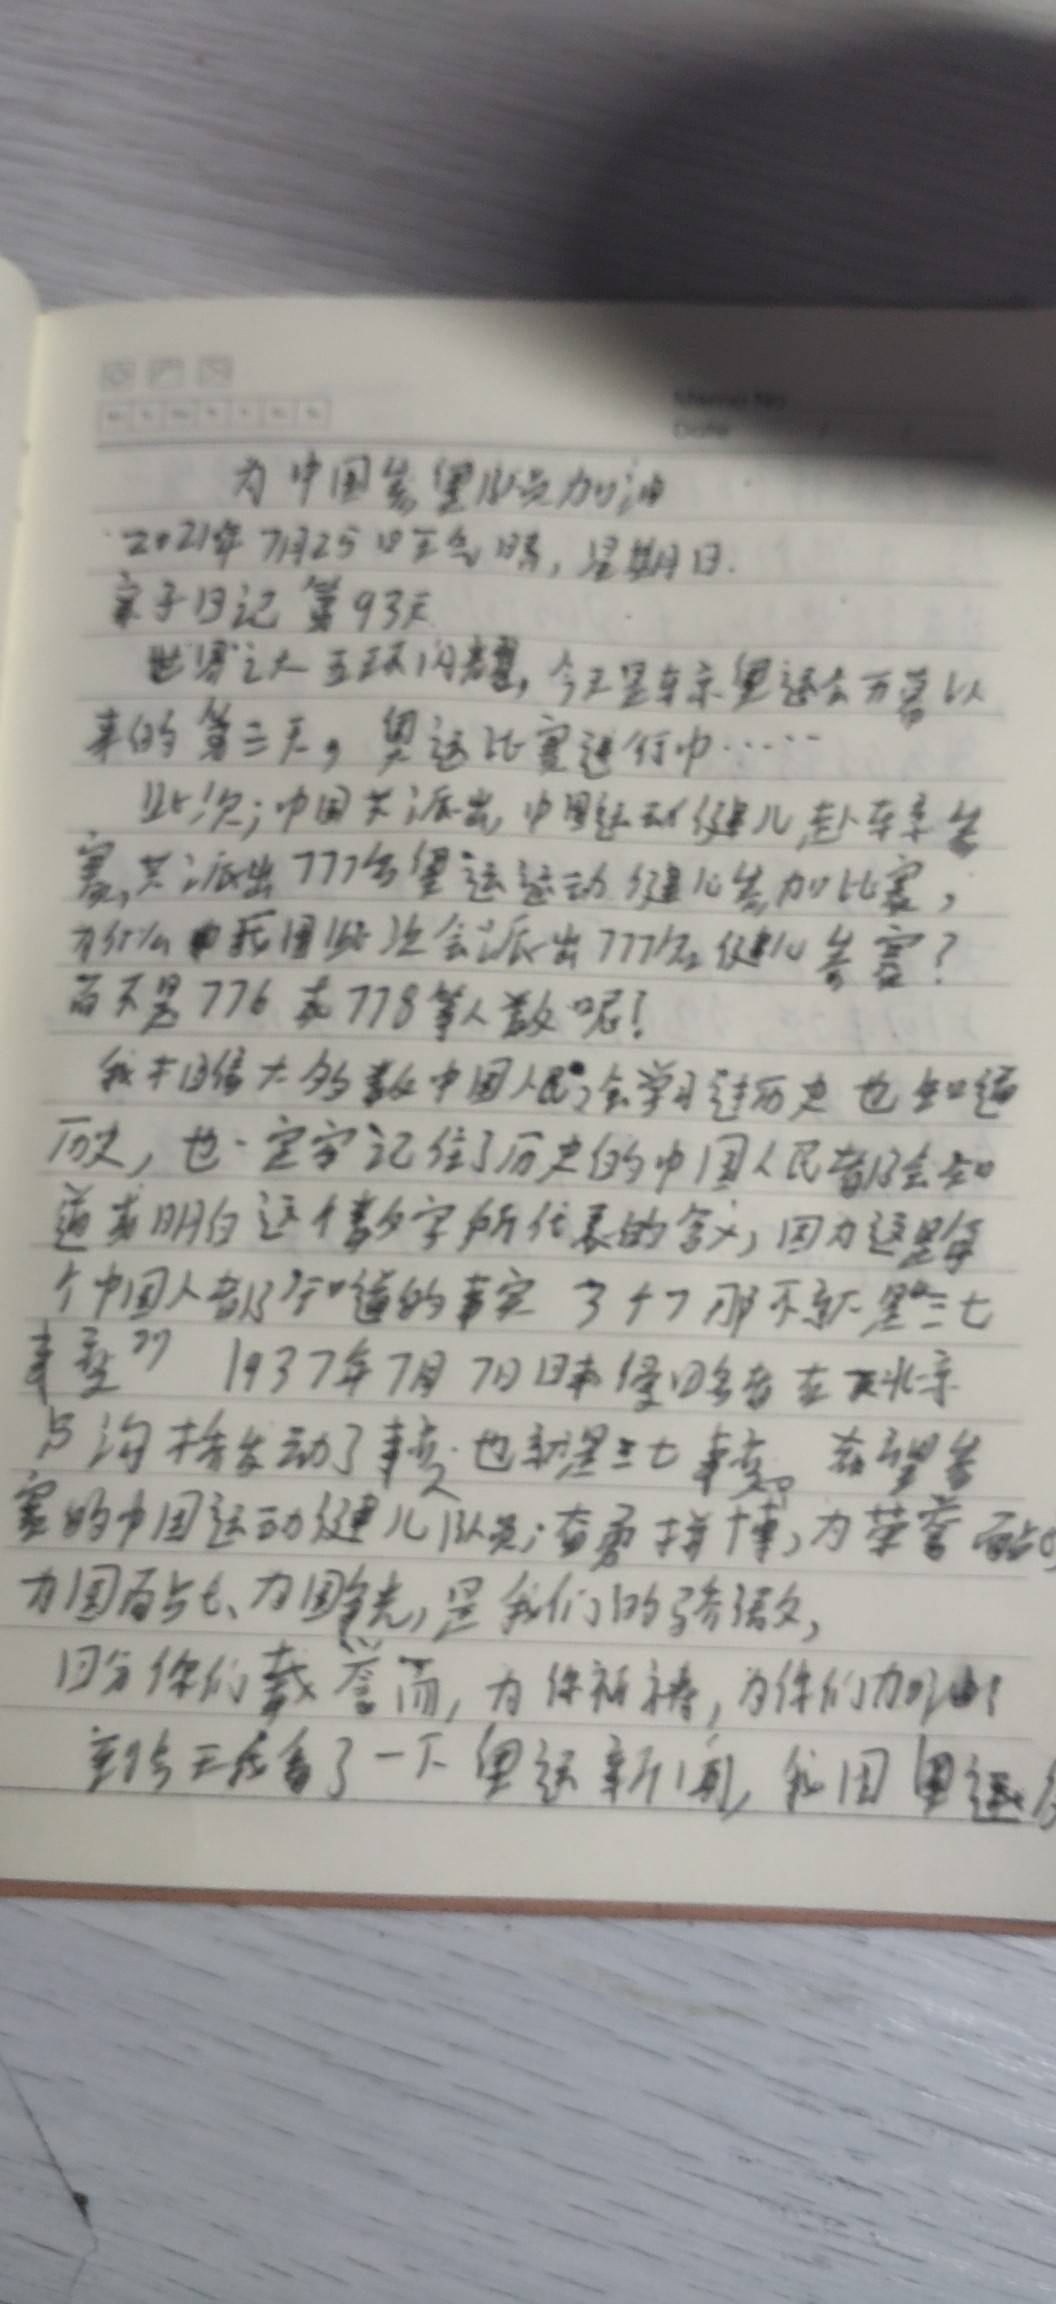 为中国奥队员加油
2021年7月25日天气晴，星期日.
亲子日记 第93天
世界之大五环闪耀，今天是东京奥运会开幕以
来的第三天，奥运比赛进行中……
此次；中国共派出，中国运动健儿赴东京参
赛，共派出777名奥运运动健儿参加比赛，
为什么我国此次会派出777名健儿参赛？
而不是776或778等人数呢！
我相信大多数中国人民，会学习过历史 也知道
历史，也一定牢记住了历史的中国人民都会知
道或明白这个数字所代表的含义，因为这是每
个中国人都知道的事实 7+7那不就是"七七
事变" 1937年7月7日日本侵略者在北京
沟桥发动了事变.也就是七七事变。希望参
赛的中国运动健儿队员；奋勇拼搏，为荣誉而战
为国而战、为国争光，是我们的骄傲，
你们载誉而，为你祈祷，为你们加油！
今天我看了一下奥运新闻，我国奥运